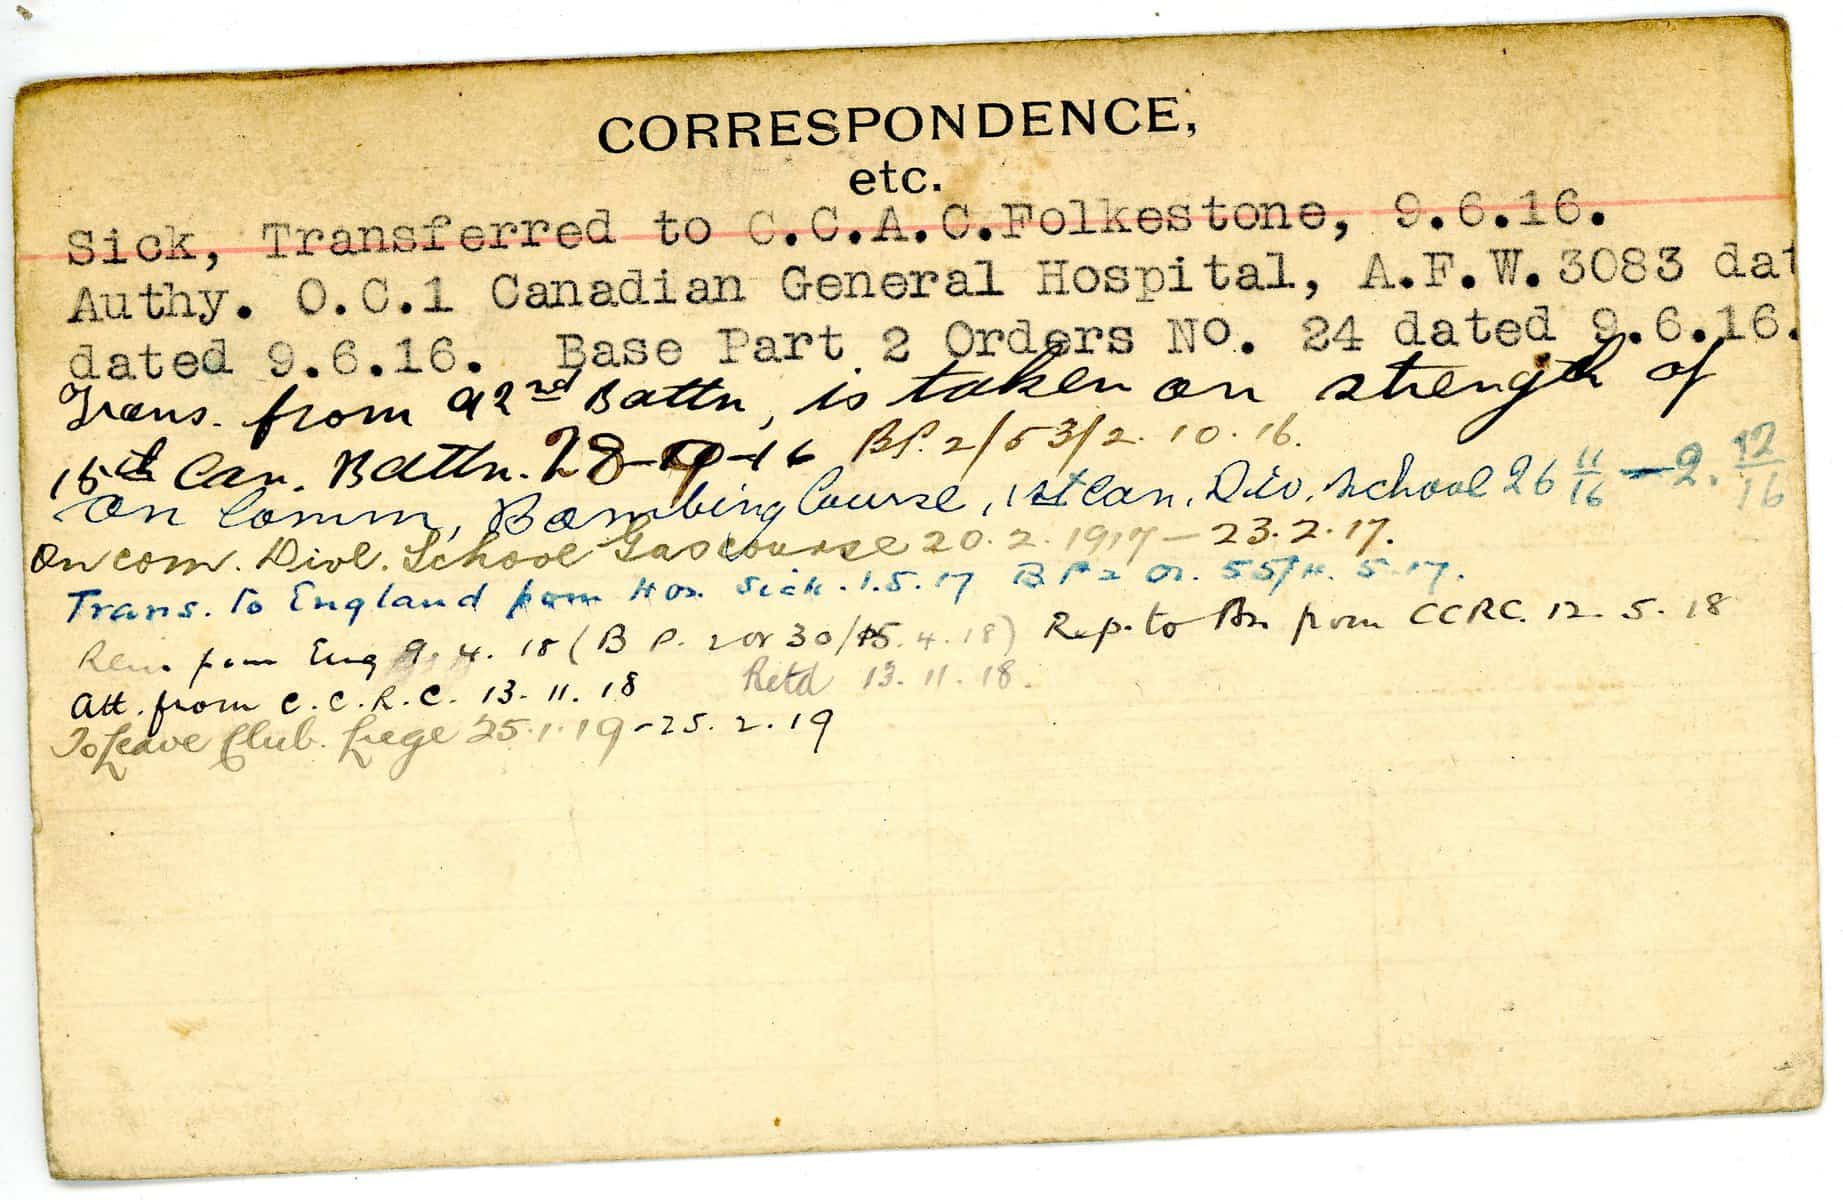 CORRESPONDENCE,
etc.
Sick, Transferred to C.C.A.C.Folkestone, 9.6.16.
Authy. O.C.1 Canadian General Hospital, A.F.W.3083 dat
dated 9.6.16. Base Part 2 Orders No. 24 dated 9.6.16.
Trans. from 92nd Battn, is taken on strength of
15th Can. Battn. 28-9-16 BP.2/53/2.10.16.
On Comm, Bombing Course, 1st Can. Div. School 26 11/16 - 2. 12/16
On com. Divl. School Gas course 20.2.1917 - 23.2.17.
Trans. to England from Hos. Sick. 1.5.17 B P 2 Or. 55/11.5.17.
Rein from Eng 9.4.18 (B P. 2 or 30/15.4.18) Rep. to Bn from CCRC. 12.5.18
Att. from C.C.R.C. 13.11.18 Retd 13.11.18.
To Leave Club. Liege 25.1.19 - 25.2.19